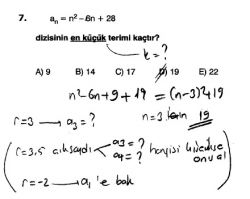 7. aₙ = n² – 6n + 28
dizisinin en küçük terimi kaçtır?
k = ?
A) 9 B) 14 C) 17 D) 19 E) 22
n² – 6n + 9 + 19 = (n–3)² + 19
r = 3 → a₃ = ? n = 3 için 19
r = 3,5 çıksaydı a₃ = ? a₄ = ? hangisi küçükse onu al
r = –2 → a₁ 'e bak